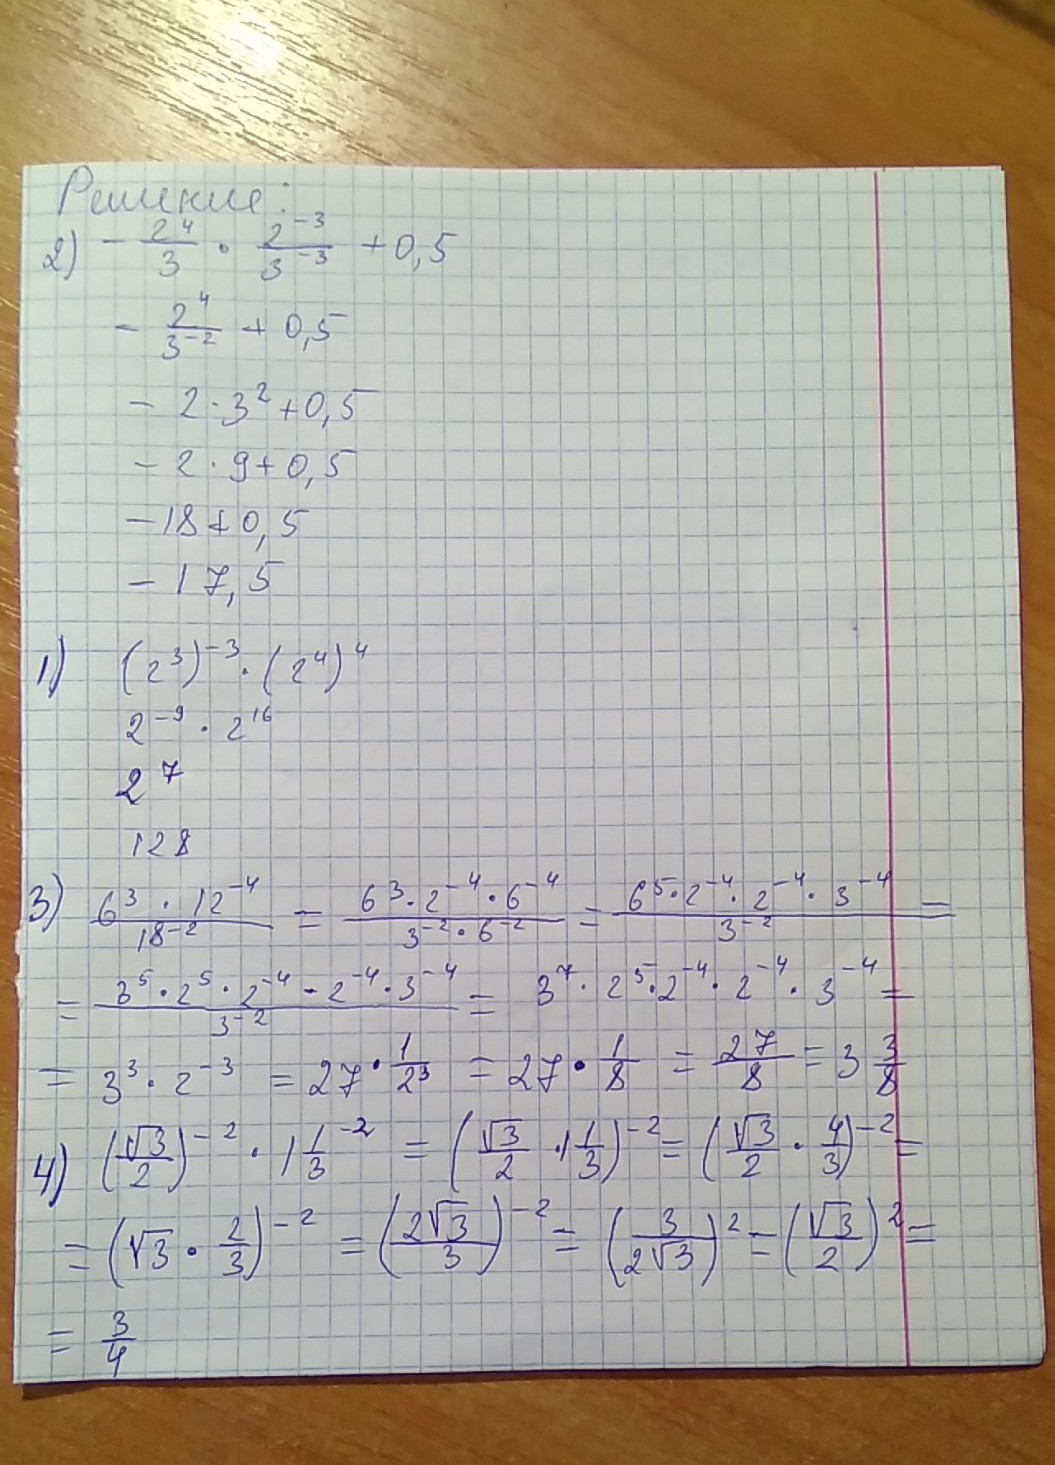 Решение:
2) - 2⁴/3 · 2⁻³/3⁻³ + 0,5
- 2⁴/3⁻² + 0,5
- 2 · 3² + 0,5
- 2 · 9 + 0,5
- 18 + 0,5
- 17,5
1) (2³)⁻³ · (2⁴)⁴
2⁻⁹ · 2¹⁶
2⁷
128
3) 6³ · 12⁻⁴/18⁻² = 6³ · 2⁻⁴ · 6⁻⁴/3⁻² · 6⁻² = 6⁵ · 2⁻⁴ · 2⁻⁴ · 3⁻⁴/3⁻² =
= 3⁵ · 2⁵ · 2⁻⁴ · 2⁻⁴ · 3⁻⁴/3⁻² = 3⁷ · 2⁵ · 2⁻⁴ · 2⁻⁴ · 3⁻⁴ =
= 3³ · 2⁻³ = 27 · 1/2³ = 27 · 1/8 = 27/8 = 3 3/8
4) (√3/2)⁻² · 1 1/3⁻² = (√3/2 · 1 1/3)⁻² = (√3/2 · 4/3)⁻² =
= (√3 · 2/3)⁻² = (2√3/3)⁻² = (3/2√3)² = (√3/2)² =
= 3/4